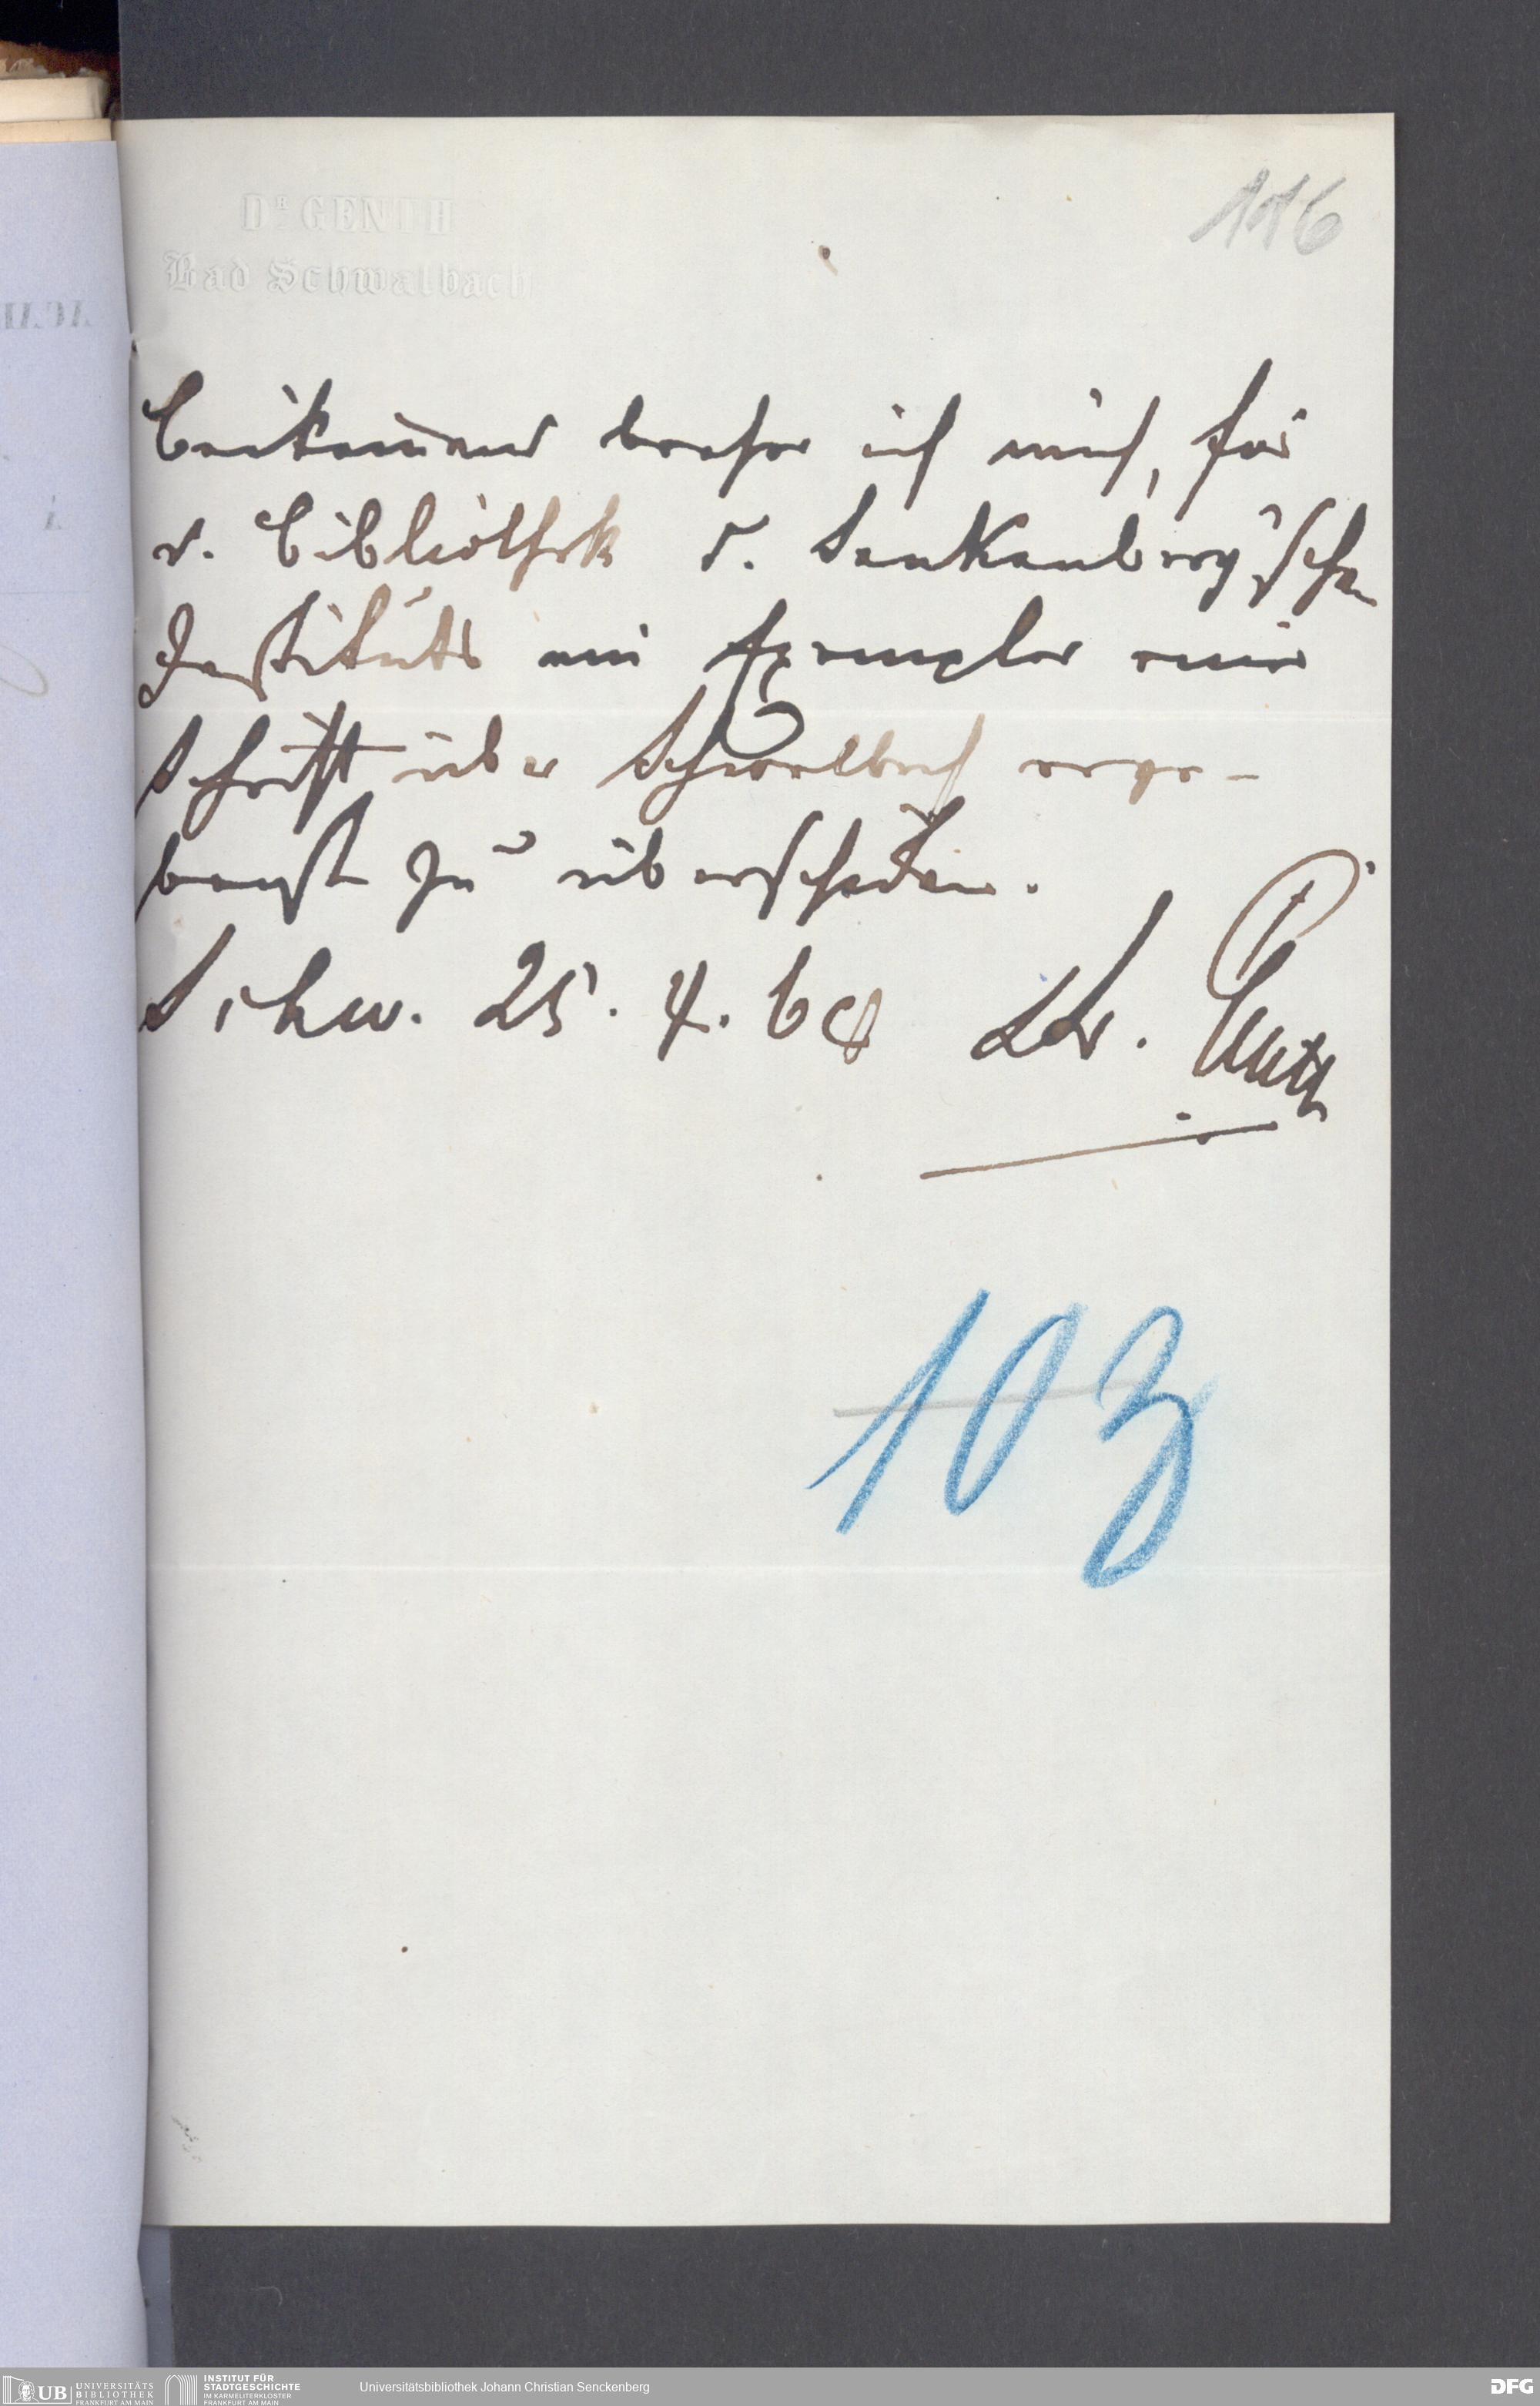 116
DR GENTH
Bad Schwalbach
Beikom̄end beehre ich mich, für
d. Bibliothek d. Senkenberg'schen
Instituts ein Exemplar einer
Schrift über Schwalbach erge-
benst zu überschicken.
Schw. 25. 4. 64 Dr. Genth
103
UB UNIVERSITÄTS
BIBLIOTHEK
FRANKFURT AM MAIN
INSTITUT FÜR
STADTGESCHICHTE
IM KARMELITERKLOSTER
FRANKFURT AM MAIN
Universitätsbibliothek Johann Christian Senckenberg
DFG